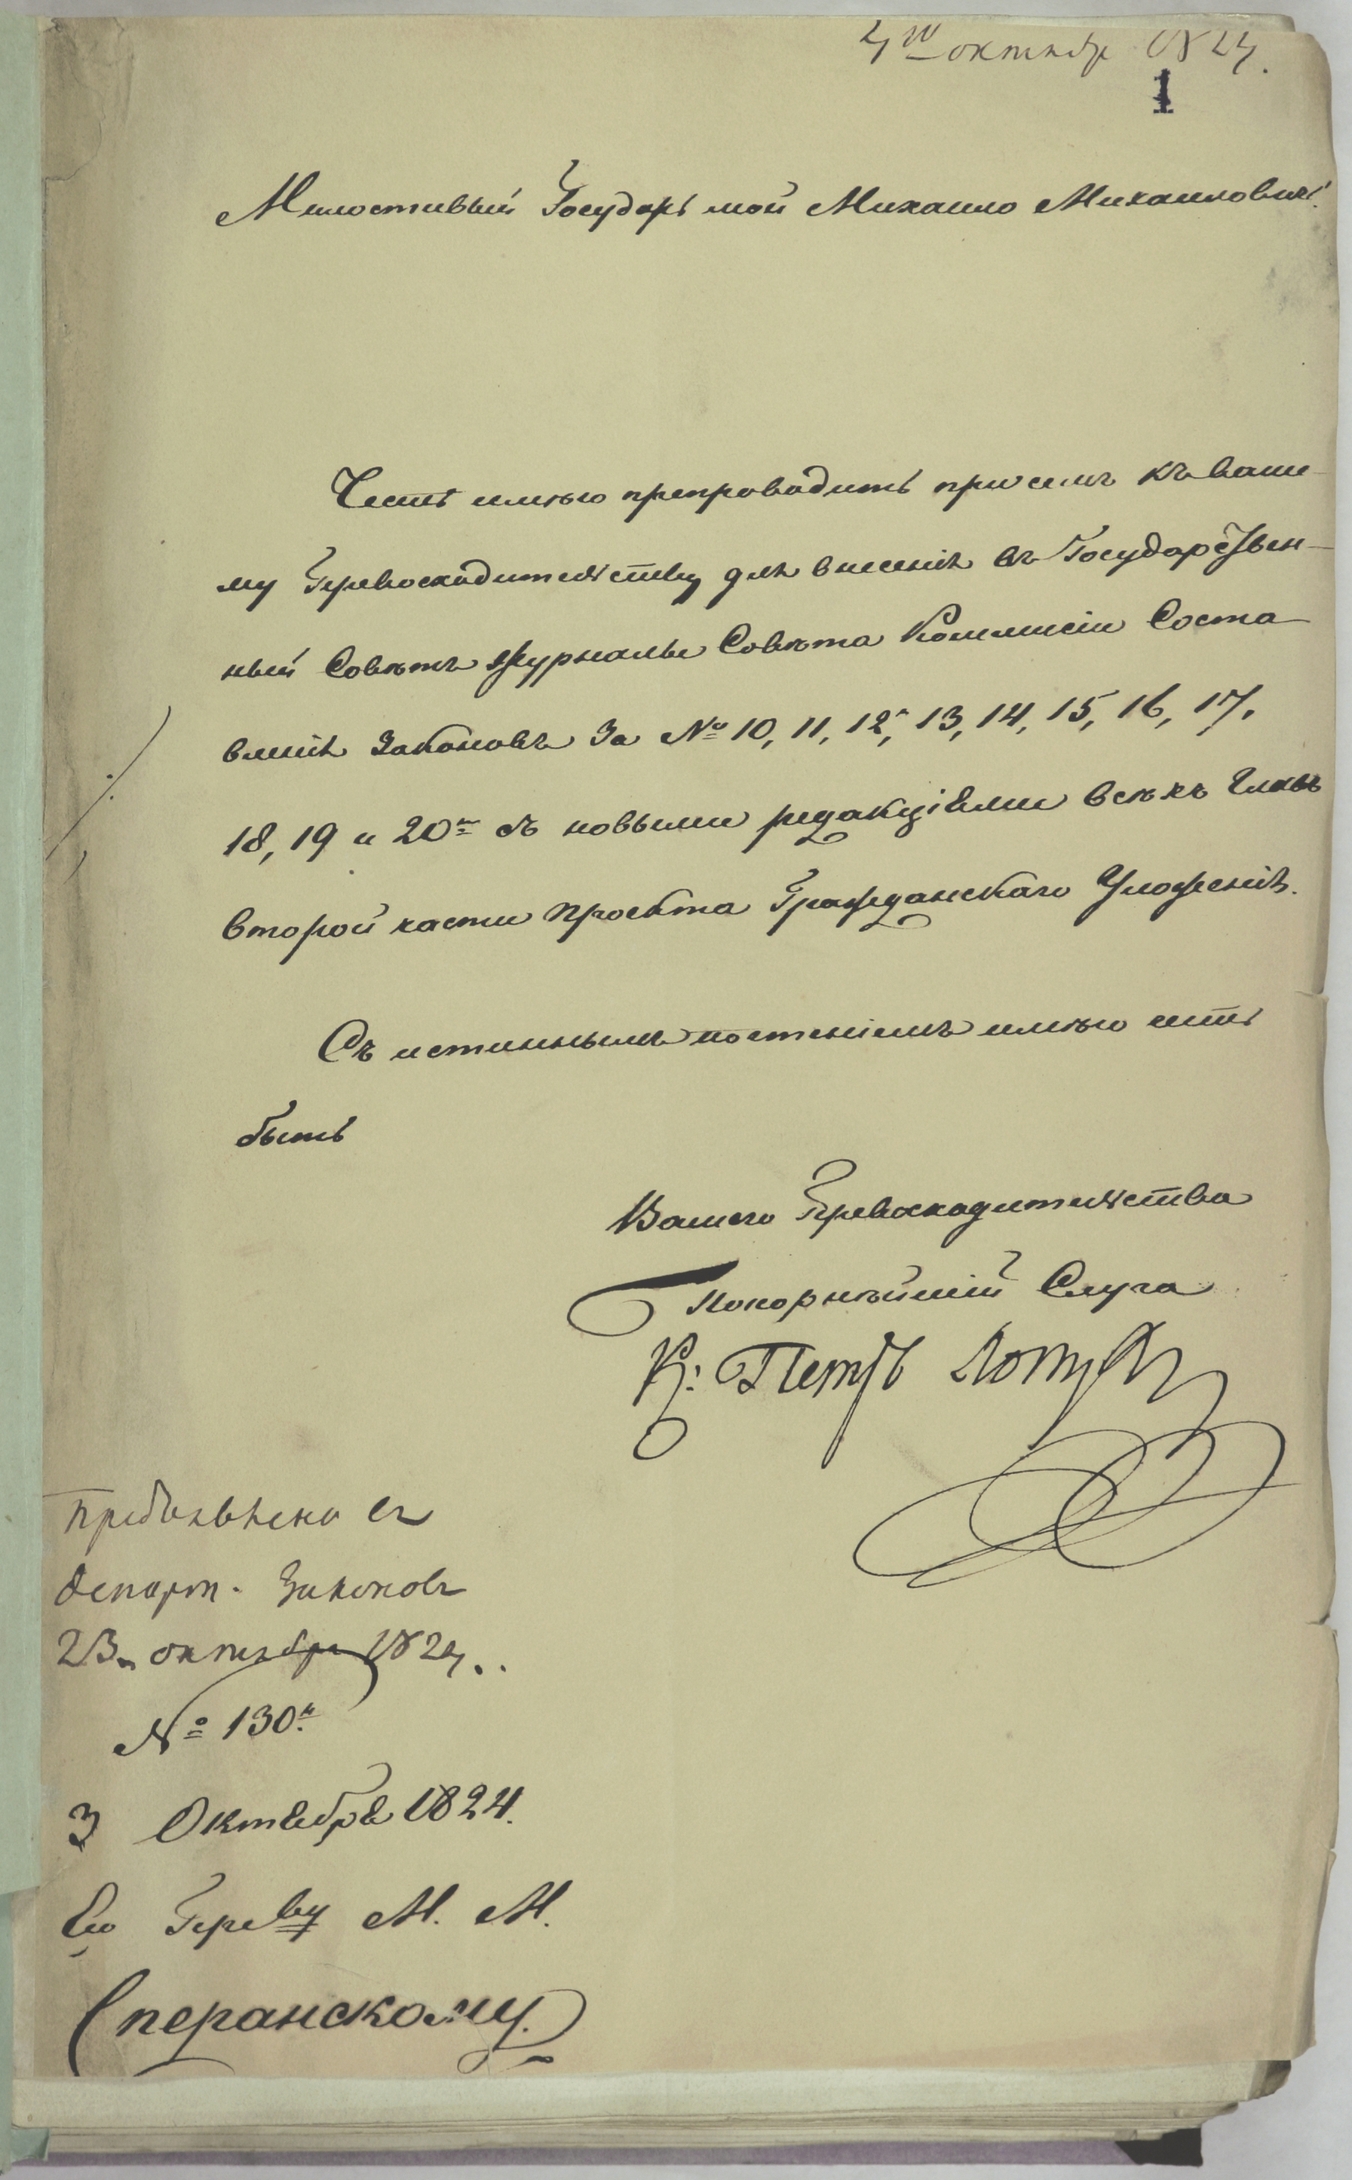 4го октябр 1824.
1
Милостивый Государь мой Михаило Михаиловичь!
Честь имѣю препроводить при семъ къ Ваше-
му Превосходительству для внесенія въ Государствен-
ный Совѣтъ журналы Совѣта Коммисіи Соста-
вленія Законовъ за № 10, 11, 12, 13, 14, 15, 16, 17,
18, 19 и 20м съ новыми редакціями всѣхъ Главъ
второй части проекта Гражданскаго Уложенія.
Съ истиннымъ почтеніемъ имѣю честь
быть
Вашего Превосходительства
Покорнѣйшій Слуга
К: Петръ Лопух
Предъявлено въ
департ. Законовъ
23 октября 1824.
№ 130.
3 Октября 1824.
Его Преву М. М.
Сперанскому.